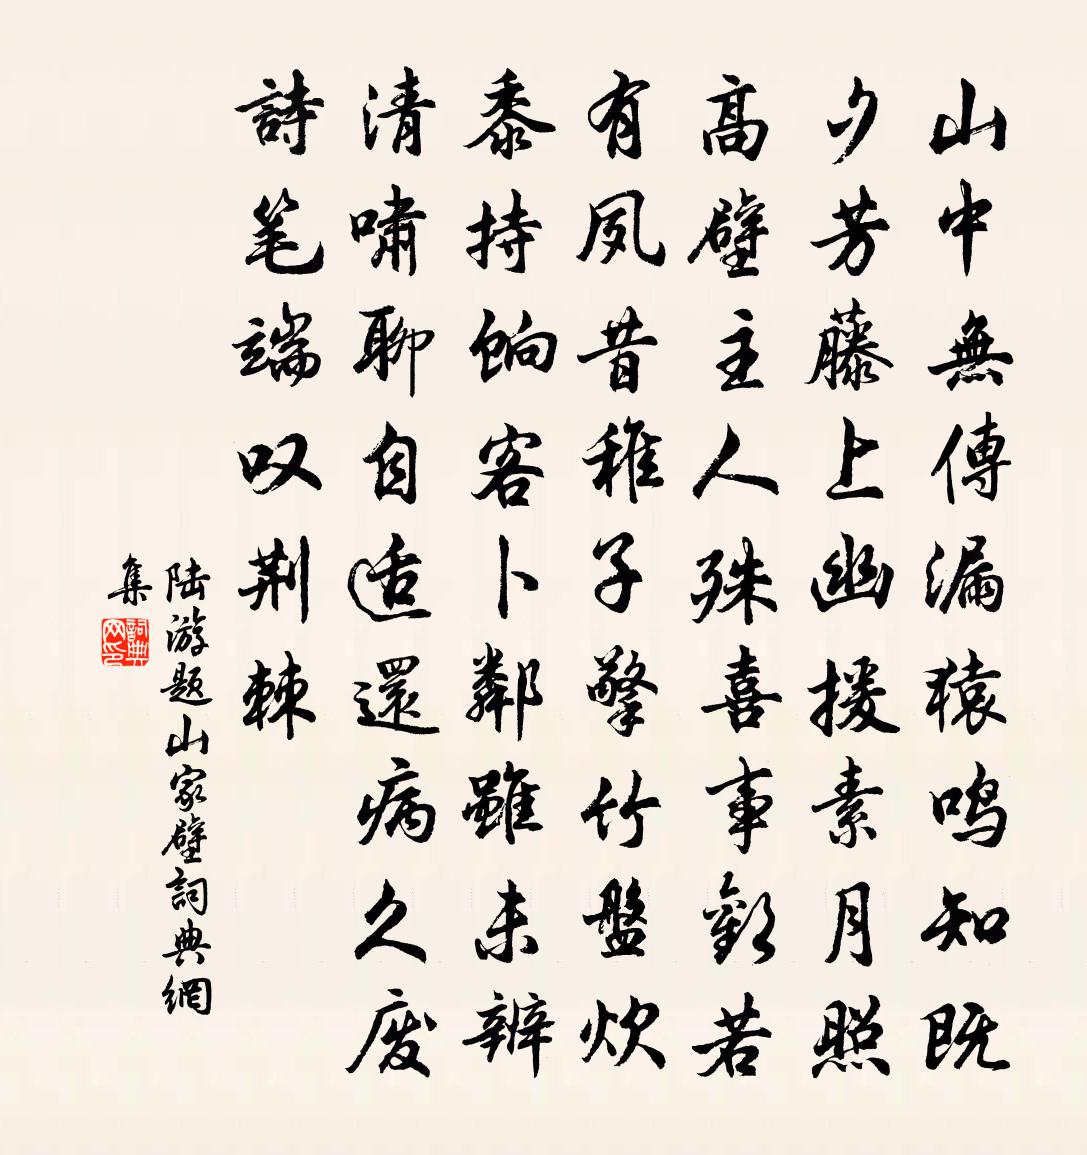 山中無傳漏猿鸣知既
夕芳藤上幽援素月照
高壁主人殊喜事歡若
有夙昔稚子擎竹盤炊
黍持餉客卜鄰雖未辨
清嘯聊自适還病久废
詩笔端叹荆棘
陆游题山家壁詞典網
集
詞典网印